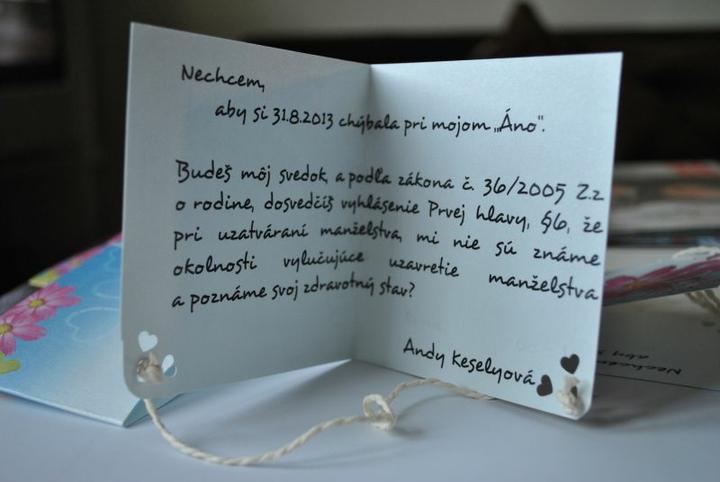 Nechcem,
aby si 31.8.2013 chýbala pri mojom „Áno".
Budeš môj svedok, a podľa zákona č. 36/2005 Z.z
o rodine, dosvedčíš vyhlásenie Prvej hlavy, §6, že
pri uzatváraní manželstva, mi nie sú známe
okolnosti vylučujúce uzavretie manželstva
a poznáme svoj zdravotný stav?
Andy Keselyová
Nechcem
aby s